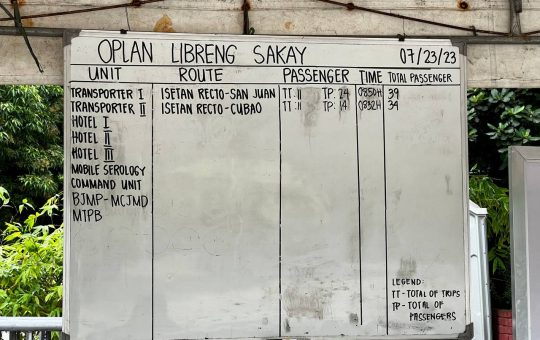 OPLAN LIBRENG SAKAY 07/23/23
UNIT ROUTE PASSENGER TIME TOTAL PASSENGER
TRANSPORTER I ISETAN RECTO-SAN JUAN TT: II TP: 24 0850H 39
TRANSPORTER II ISETAN RECTO-CUBAO TT: II TP: 14 0832H 34
HOTEL I
HOTEL II
HOTEL III
MOBILE SEROLOGY
COMMAND UNIT
BJMP-MCJMD
MTPB
LEGEND:
TT - TOTAL OF TRIPS
TP - TOTAL OF
PASSENGERS